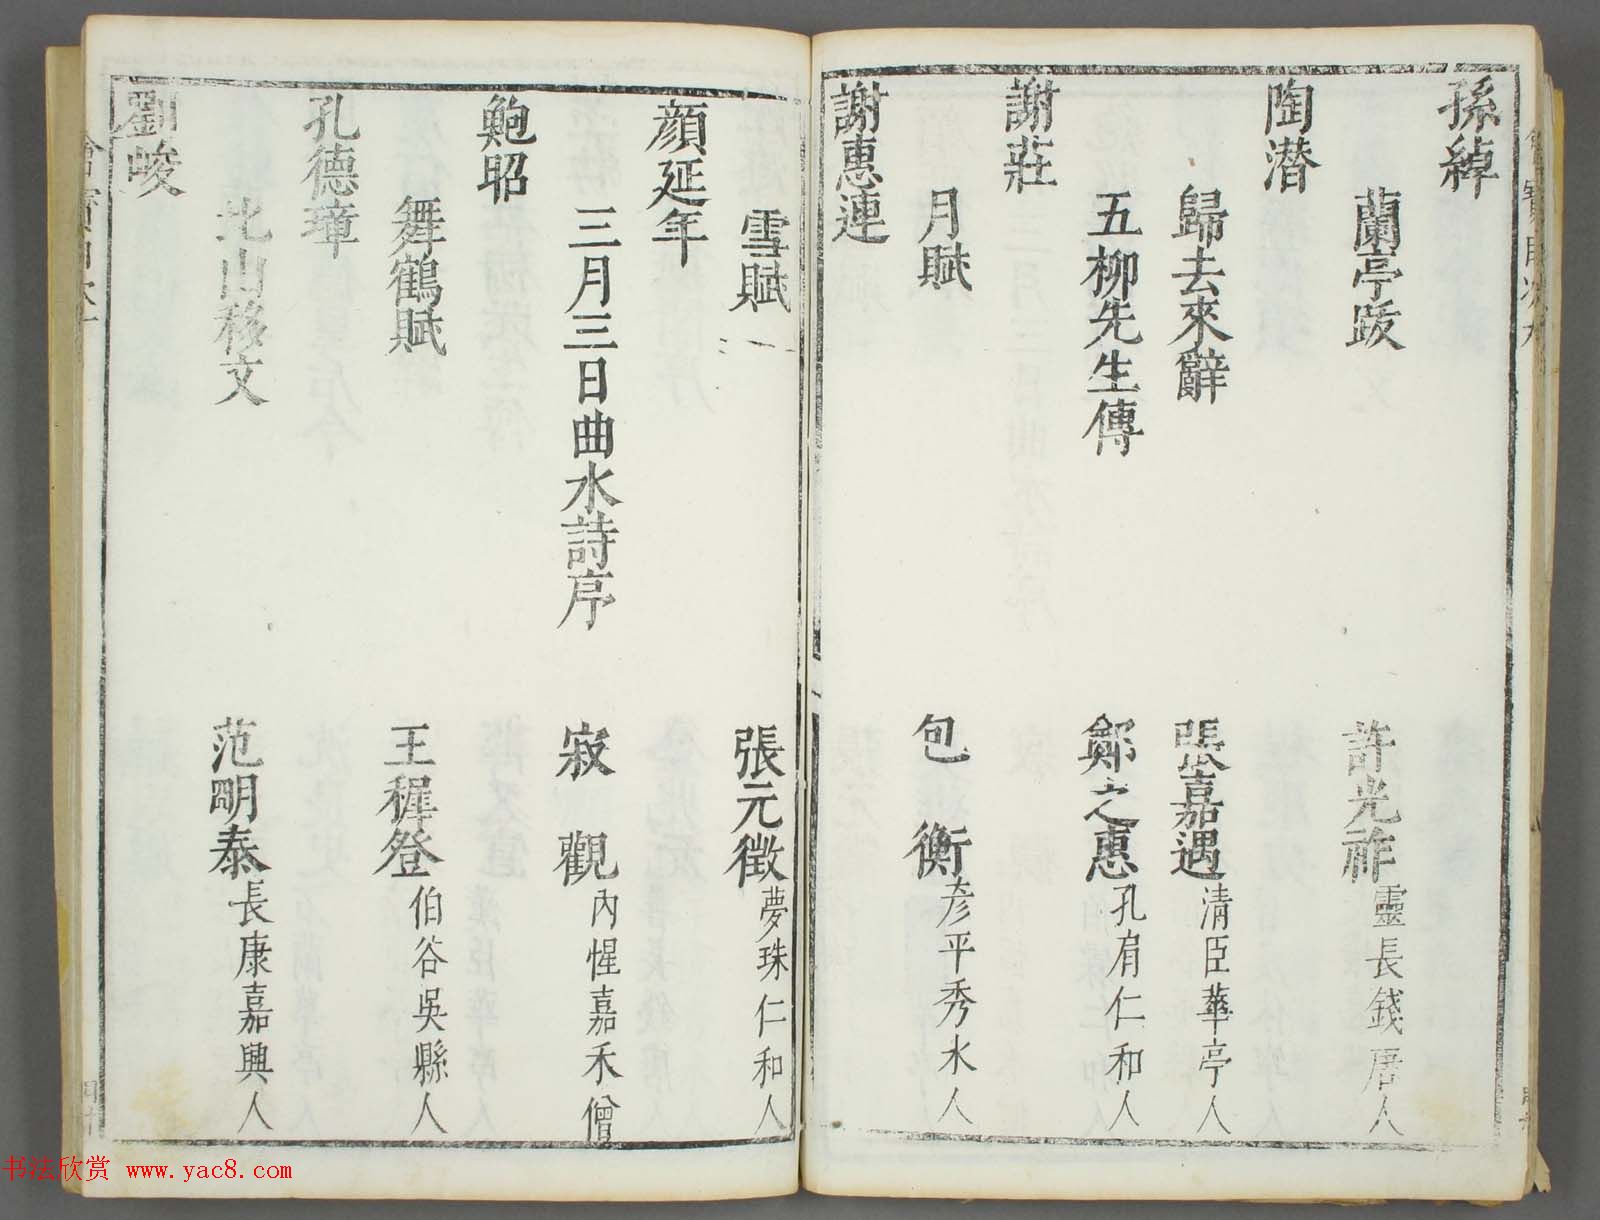 孫綽
蘭亭跋 許光祚 靈長錢唐人
陶潛
歸去來辭 張嘉遇 清臣華亭人
五柳先生傳 鄭之惠 孔肩仁和人
謝莊
月賦 包衡 彥平秀水人
謝惠連
雪賦 張元徵 夢珠仁和人
顏延年
三月三日曲水詩序 寂觀 內惺嘉禾僧
鮑昭
舞鶴賦 王穉登 伯谷吳縣人
孔德璋
北山移文 范明泰 長康嘉興人
劉峻
书法欣赏 www.yac8.com